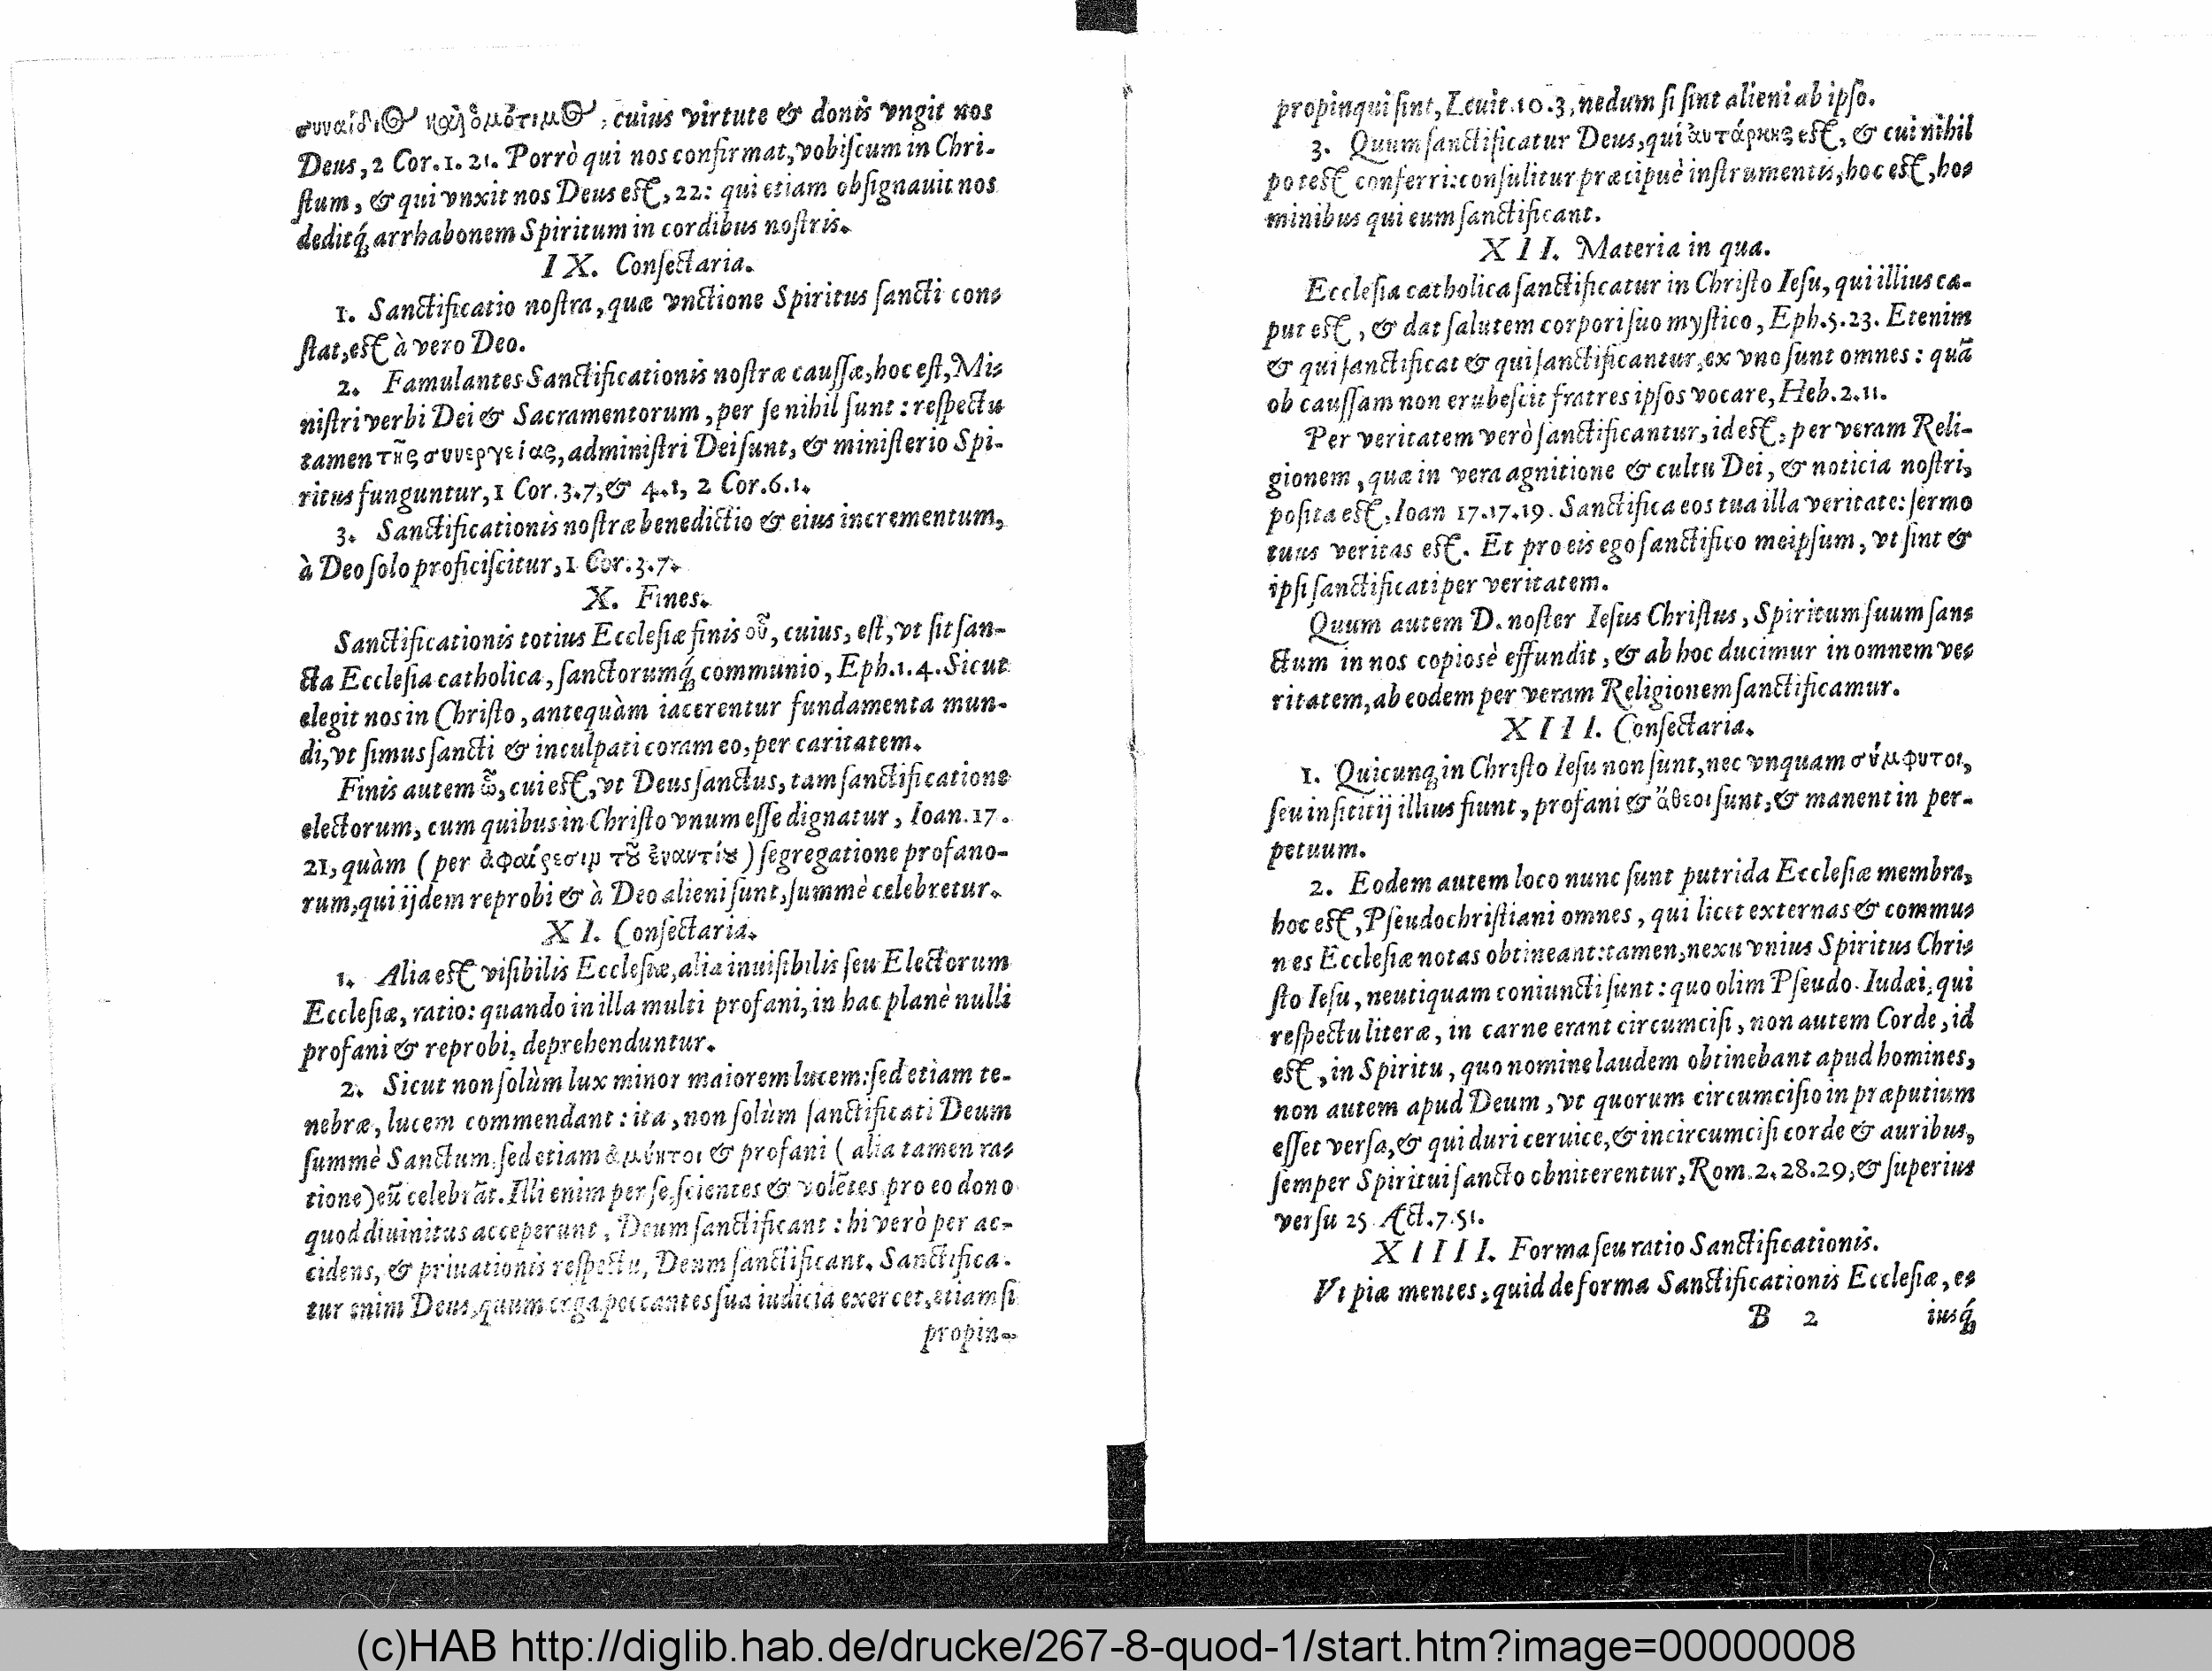 συναϊδίῳ καὶ ὁμότιμος, cuius virtute & donis vngit nos
Deus, 2 Cor. 1. 21. Porrò qui nos confirmat, vobiſcum in Chri-
ſtum, & qui vnxit nos Deus eſt, 22: qui etiam obſignauit nos
deditq́; arrhabonem Spiritum in cordibus noſtris.
IX. Conſectaria.
1. Sanctificatio noſtra, quæ vnctione Spiritus ſancti con-
ſtat, eſt à vero Deo.
2. Famulantes Sanctificationis noſtræ cauſſæ, hoc eſt, Mi-
niſtri verbi Dei & Sacramentorum, per ſe nihil ſunt: reſpectu
tamen τῆς συνεργείας, adminiſtri Dei ſunt, & miniſterio Spi-
ritus funguntur, 1 Cor. 3. 7, & 4. 1, 2 Cor. 6. 1.
3. Sanctificationis noſtræ benedictio & eius incrementum,
à Deo ſolo proficiſcitur, 1 Cor. 3. 7.
X. Fines.
Sanctificationis totius Eccleſiæ finis οὗ, cuius, eſt, vt ſit ſan-
cta Eccleſia catholica, ſanctorumq́; communio, Eph. 1. 4. Sicut
elegit nos in Chriſto, antequàm iacerentur fundamenta mun-
di, vt ſimus ſancti & inculpati coram eo, per caritatem.
Finis autem ᾧ, cui eſt, vt Deus ſanctus, tam ſanctificatione
electorum, cum quibus in Chriſto vnum eſſe dignatur, Ioan. 17.
21, quàm (per ἀφαίρεσιμ τοῦ ἐναντίου) ſegregatione profano-
rum, qui ijdem reprobi & à Deo alieni ſunt, ſummè celebretur.
XI. Conſectaria.
1. Alia eſt viſibilis Eccleſiæ, alia inuiſibilis ſeu Electorum
Eccleſiæ, ratio: quando in illa multi profani, in hac planè nulli
profani & reprobi, deprehenduntur.
2. Sicut non ſolùm lux minor maiorem lucem: ſed etiam te-
nebræ, lucem commendant: ita, non ſolùm ſanctificati Deum
ſummè Sanctum ſed etiam ἀμύητοι & profani (alia tamen ra-
tione) eū celebrāt. Illi enim per ſe, ſcientes & volētes pro eo dono
quod diuinitus acceperunt, Deum ſanctificant: hi verò per ac-
cidens, & priuationis reſpectu, Deum ſanctificant. Sanctifica-
tur enim Deus, quum erga peccantes ſua iudicia exercet, etiamſi
propin-
propinqui ſint, Leuit. 10. 3, nedum ſi ſint alieni ab ipſo.
3. Quum ſanctificatur Deus, qui ἀυτάρκης eſt, & cui nihil
poteſt conferri: conſulitur præcipuè inſtrumentis, hoc eſt, ho-
minibus qui eum ſanctificant.
XII. Materia in qua.
Eccleſia catholica ſanctificatur in Chriſto Ieſu, qui illius ca-
put eſt, & dat ſalutem corpori ſuo myſtico, Eph. 5. 23. Etenim
& qui ſanctificat & qui ſanctificantur, ex vno ſunt omnes: quā
ob cauſſam non erubeſcit fratres ipſos vocare, Heb. 2. 11.
Per veritatem verò ſanctificantur, id eſt, per veram Reli-
gionem, quæ in vera agnitione & cultu Dei, & noticia noſtri,
poſita eſt, Ioan 17. 17. 19. Sanctifica eos tua illa veritate: ſermo
tuus veritas eſt. Et pro eis ego ſanctifico meipſum, vt ſint &
ipſi ſanctificati per veritatem.
Quum autem D. noſter Ieſus Chriſtus, Spiritum ſuum ſan-
ctum in nos copioſè effundit, & ab hoc ducimur in omnem ve-
ritatem, ab eodem per veram Religionem ſanctificamur.
XIII. Conſectaria.
1. Quicunq; in Chriſto Ieſu non ſunt, nec vnquam σύμφυτοι,
ſeu inſititij illius fiunt, profani & ἄθεοι ſunt, & manent in per-
petuum.
2. Eodem autem loco nunc ſunt putrida Eccleſiæ membra,
hoc eſt, Pſeudochriſtiani omnes, qui licet externas & commu-
nes Eccleſiæ notas obtineant: tamen, nexu vnius Spiritus Chri-
ſto Ieſu, neutiquam coniuncti ſunt: quo olim Pſeudo-Iudæi, qui
reſpectu literæ, in carne erant circumciſi, non autem Corde, id
eſt, in Spiritu, quo nomine laudem obtinebant apud homines,
non autem apud Deum, vt quorum circumciſio in præputium
eſſet verſa, & qui duri ceruice, & incircumciſi corde & auribus,
ſemper Spiritui ſancto obniterentur, Rom. 2. 28. 29, & ſuperius
verſu 25 Act. 7. 51.
XIIII. Forma ſeu ratio Sanctificationis.
Vt piæ mentes, quid de forma Sanctificationis Eccleſiæ, e-
B 2 iusq́;
(c)HAB http://diglib.hab.de/drucke/267-8-quod-1/start.htm?image=00000008